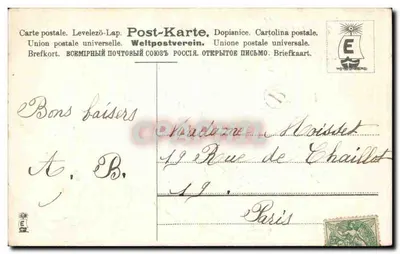 Carte postale. Levelező-Lap. Post-Karte. Dopisnice. Cartolina postale.
Union postale universelle. Weltpostverein. Unione postale universale.
Brefkort. ВСЕМІРНЫЙ ПОЧТОВЫЙ СОЮЗЪ РОССІЯ. ОТКРЫТОЕ ПИСЬМО. Briefkaart.
E
Bons baisers
A. B.
Madame Moisset
19 Rue de Chaillot
19.
Paris
E